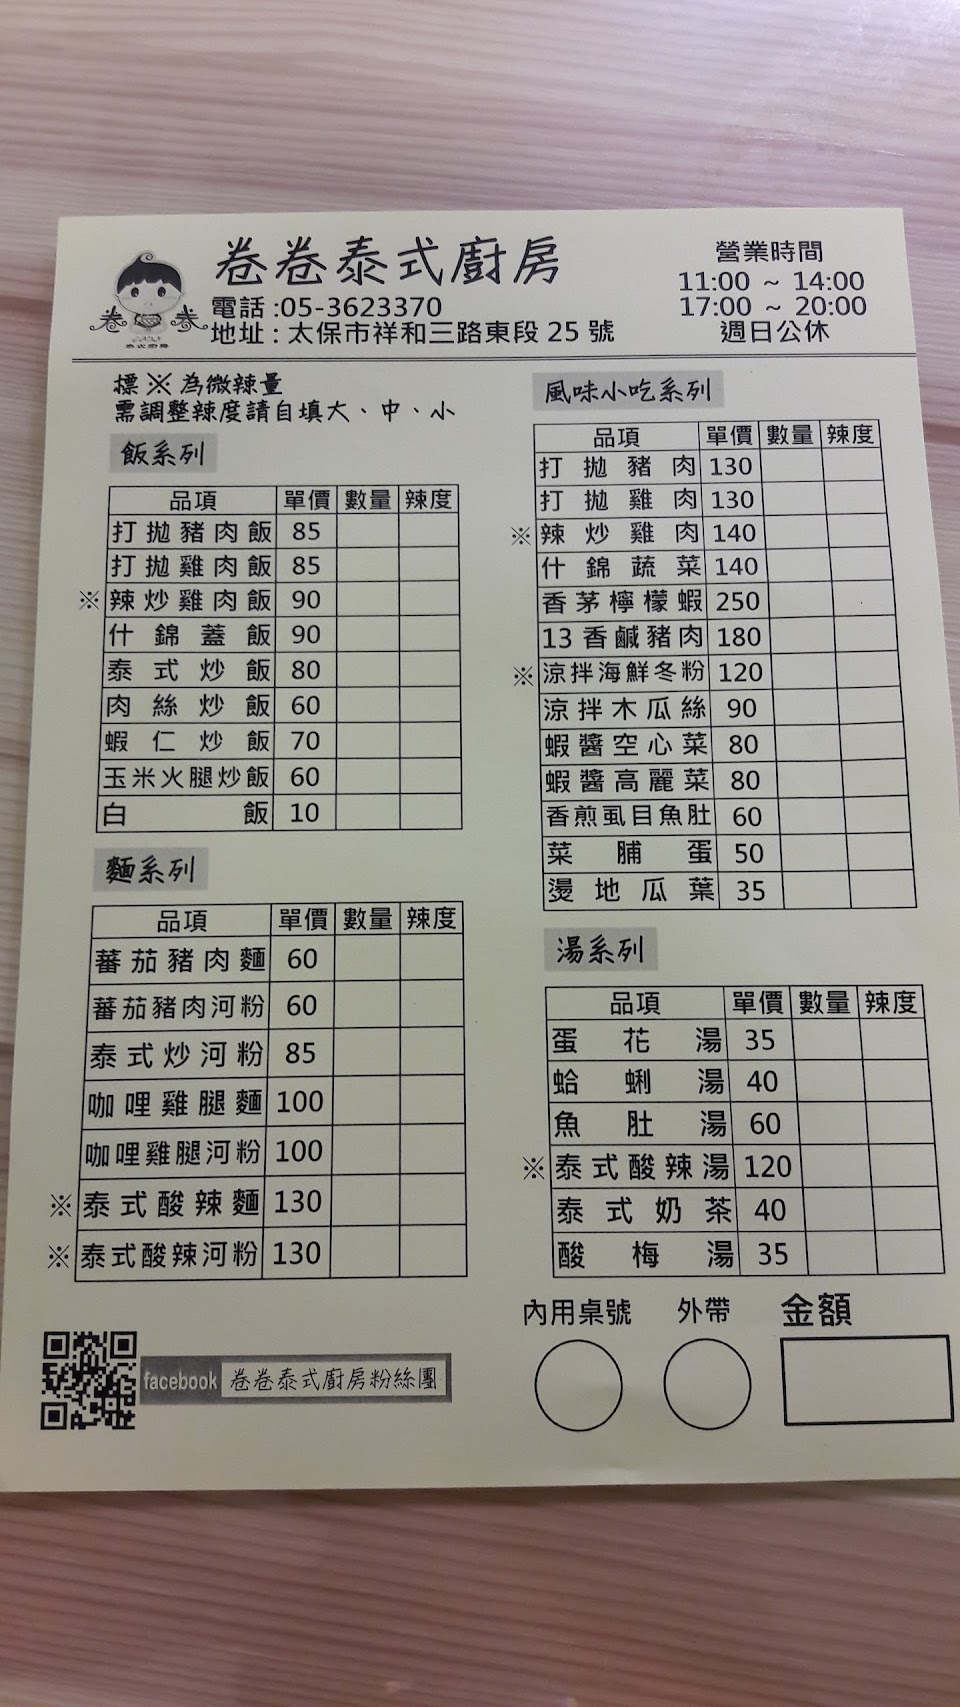 卷卷泰式廚房
電話:05-3623370
地址：太保市祥和三路東段 25 號
營業時間
11:00 ~ 14:00
17:00 ~ 20:00
週日公休
卷 卷
標※為微辣量
需調整辣度請自填大、中、小
飯系列
品項 單價 數量 辣度
打拋豬肉飯 85
打拋雞肉飯 85
※ 辣炒雞肉飯 90
什錦蓋飯 90
泰式炒飯 80
肉絲炒飯 60
蝦仁炒飯 70
玉米火腿炒飯 60
白飯 10
麵系列
品項 單價 數量 辣度
蕃茄豬肉麵 60
蕃茄豬肉河粉 60
泰式炒河粉 85
咖哩雞腿麵 100
咖哩雞腿河粉 100
※ 泰式酸辣麵 130
※ 泰式酸辣河粉 130
facebook 卷卷泰式廚房粉絲團
風味小吃系列
品項 單價 數量 辣度
打拋豬肉 130
打拋雞肉 130
※ 辣炒雞肉 140
什錦蔬菜 140
香茅檸檬蝦 250
13香鹹豬肉 180
※ 涼拌海鮮冬粉 120
涼拌木瓜絲 90
蝦醬空心菜 80
蝦醬高麗菜 80
香煎虱目魚肚 60
菜脯蛋 50
燙地瓜葉 35
湯系列
品項 單價 數量 辣度
蛋花湯 35
蛤蜊湯 40
魚肚湯 60
※ 泰式酸辣湯 120
泰式奶茶 40
酸梅湯 35
內用桌號 外帶 金額